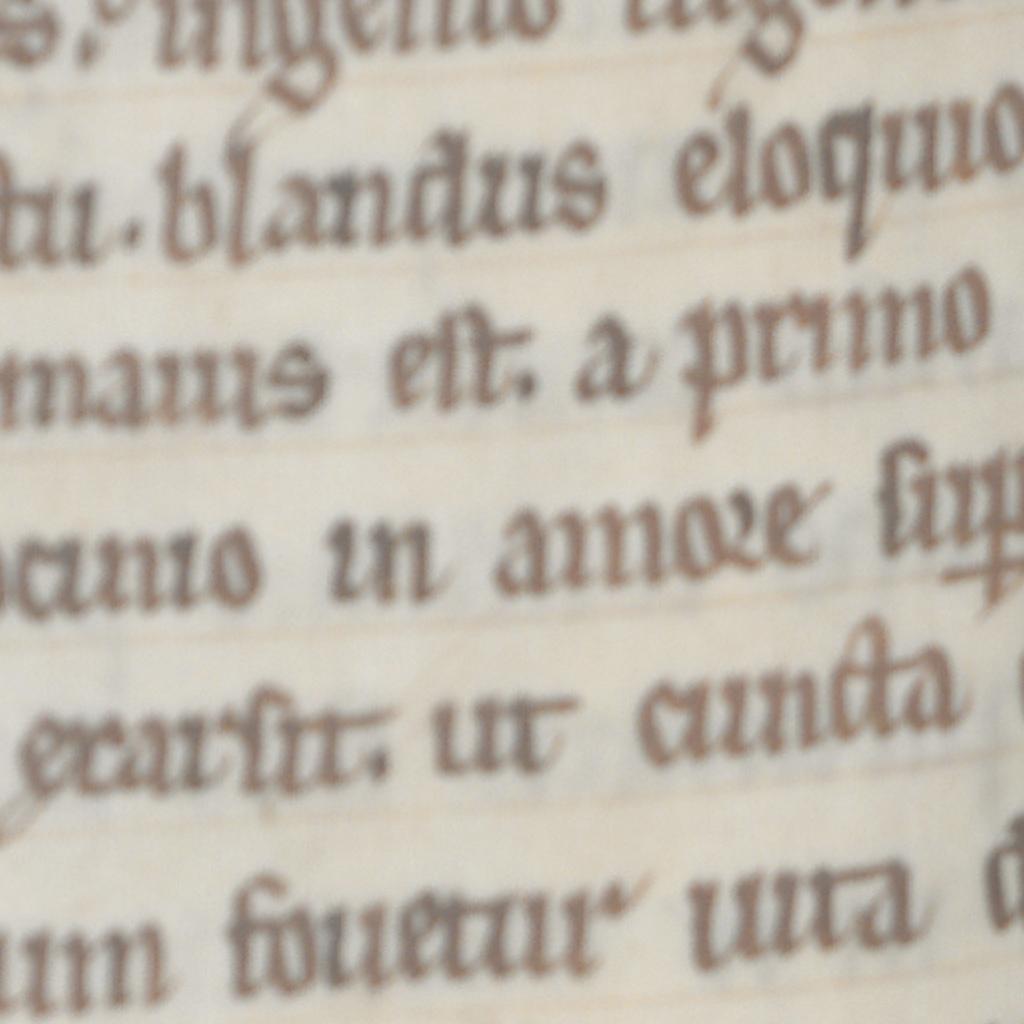 ingenio
tu. blandus eloquio
manus est. a primo
in amore
exarsit. ut cuncta
um fouetur uita